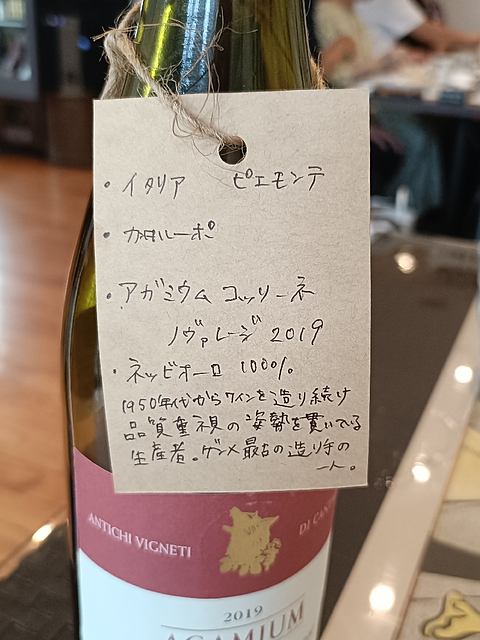 ・イタリア ピエモンテ
・カルローポ
・アガミウム コッリーネ
ノヴァレージ 2019
・ネッビオーロ 100%
1950年代からワインを造り続け
品質重視の姿勢を貫いている
生産者。ゲンメ最古の造り手の
一人。
ANTICHI VIGNETI
DI CAN
2019
AGAMIUM